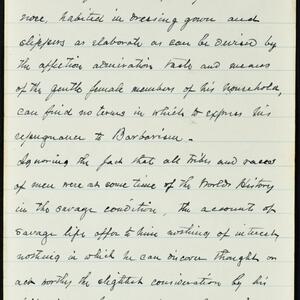 nose, habited in dressing gown and
slippers as elaborate as can be devised by
the affection admiration taste and means
of the gentle female members of his household,
can find no terms in which to express his
repugnance to Barbarism -
Ignoring the fact that all tribes and races
of men were at some time of the Worlds History
in the savage condition, the account of
savage life offer to him nothing of interest
nothing in which he can discover thought or
act worthy the slightest consideration by his